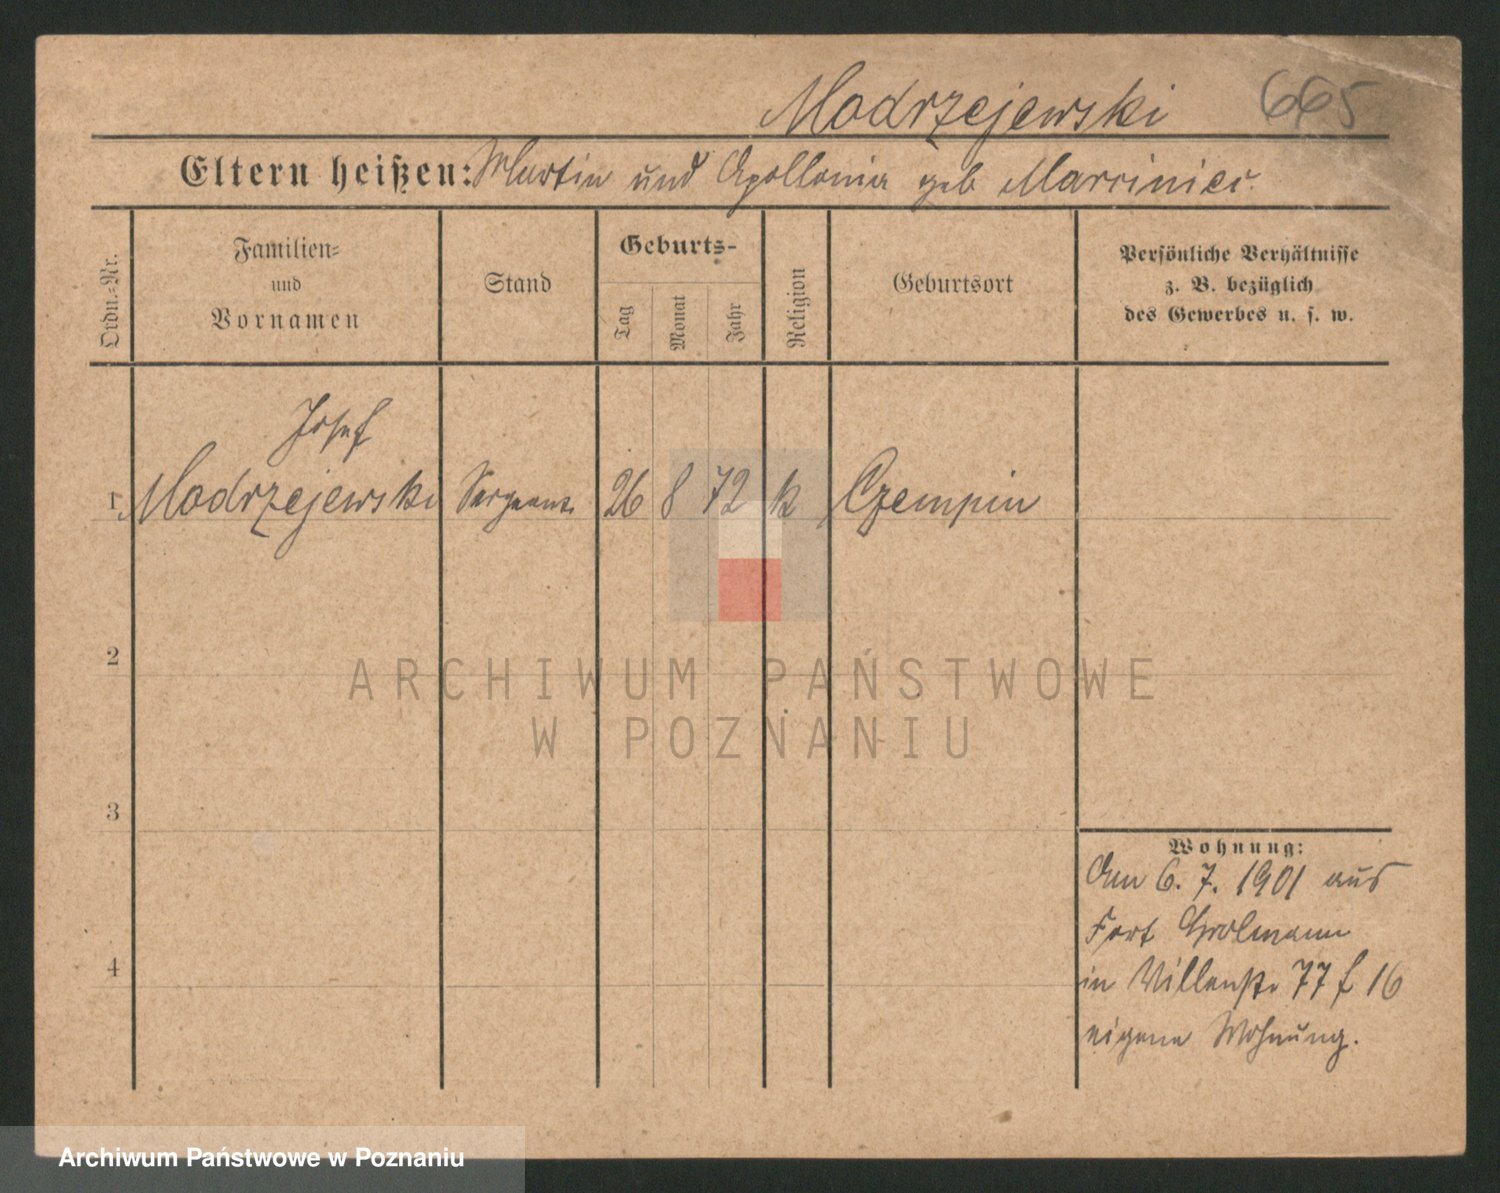 Modrzejewski 665
Eltern heißen: Martin und Apollonia geb Marciniec.
Ordn.-Nr.
Familien-
und
Vornamen
Stand
Geburts-
Tag
Monat
Jahr
Religion
Geburtsort
Persönliche Verhältnisse
z. B. bezüglich
des Gewerbes u. s. w.
Josef
1 Modrzejewski Sergeant. 26 8 72 k Czempin
2
3
4
Wohnung:
Am 6. 7. 1901 aus
Fort Grolmann
in Villenstr 77 f 16
eigene Wohnung.
ARCHIWUM PAŃSTWOWE
W POZNANIU
Archiwum Państwowe w Poznaniu